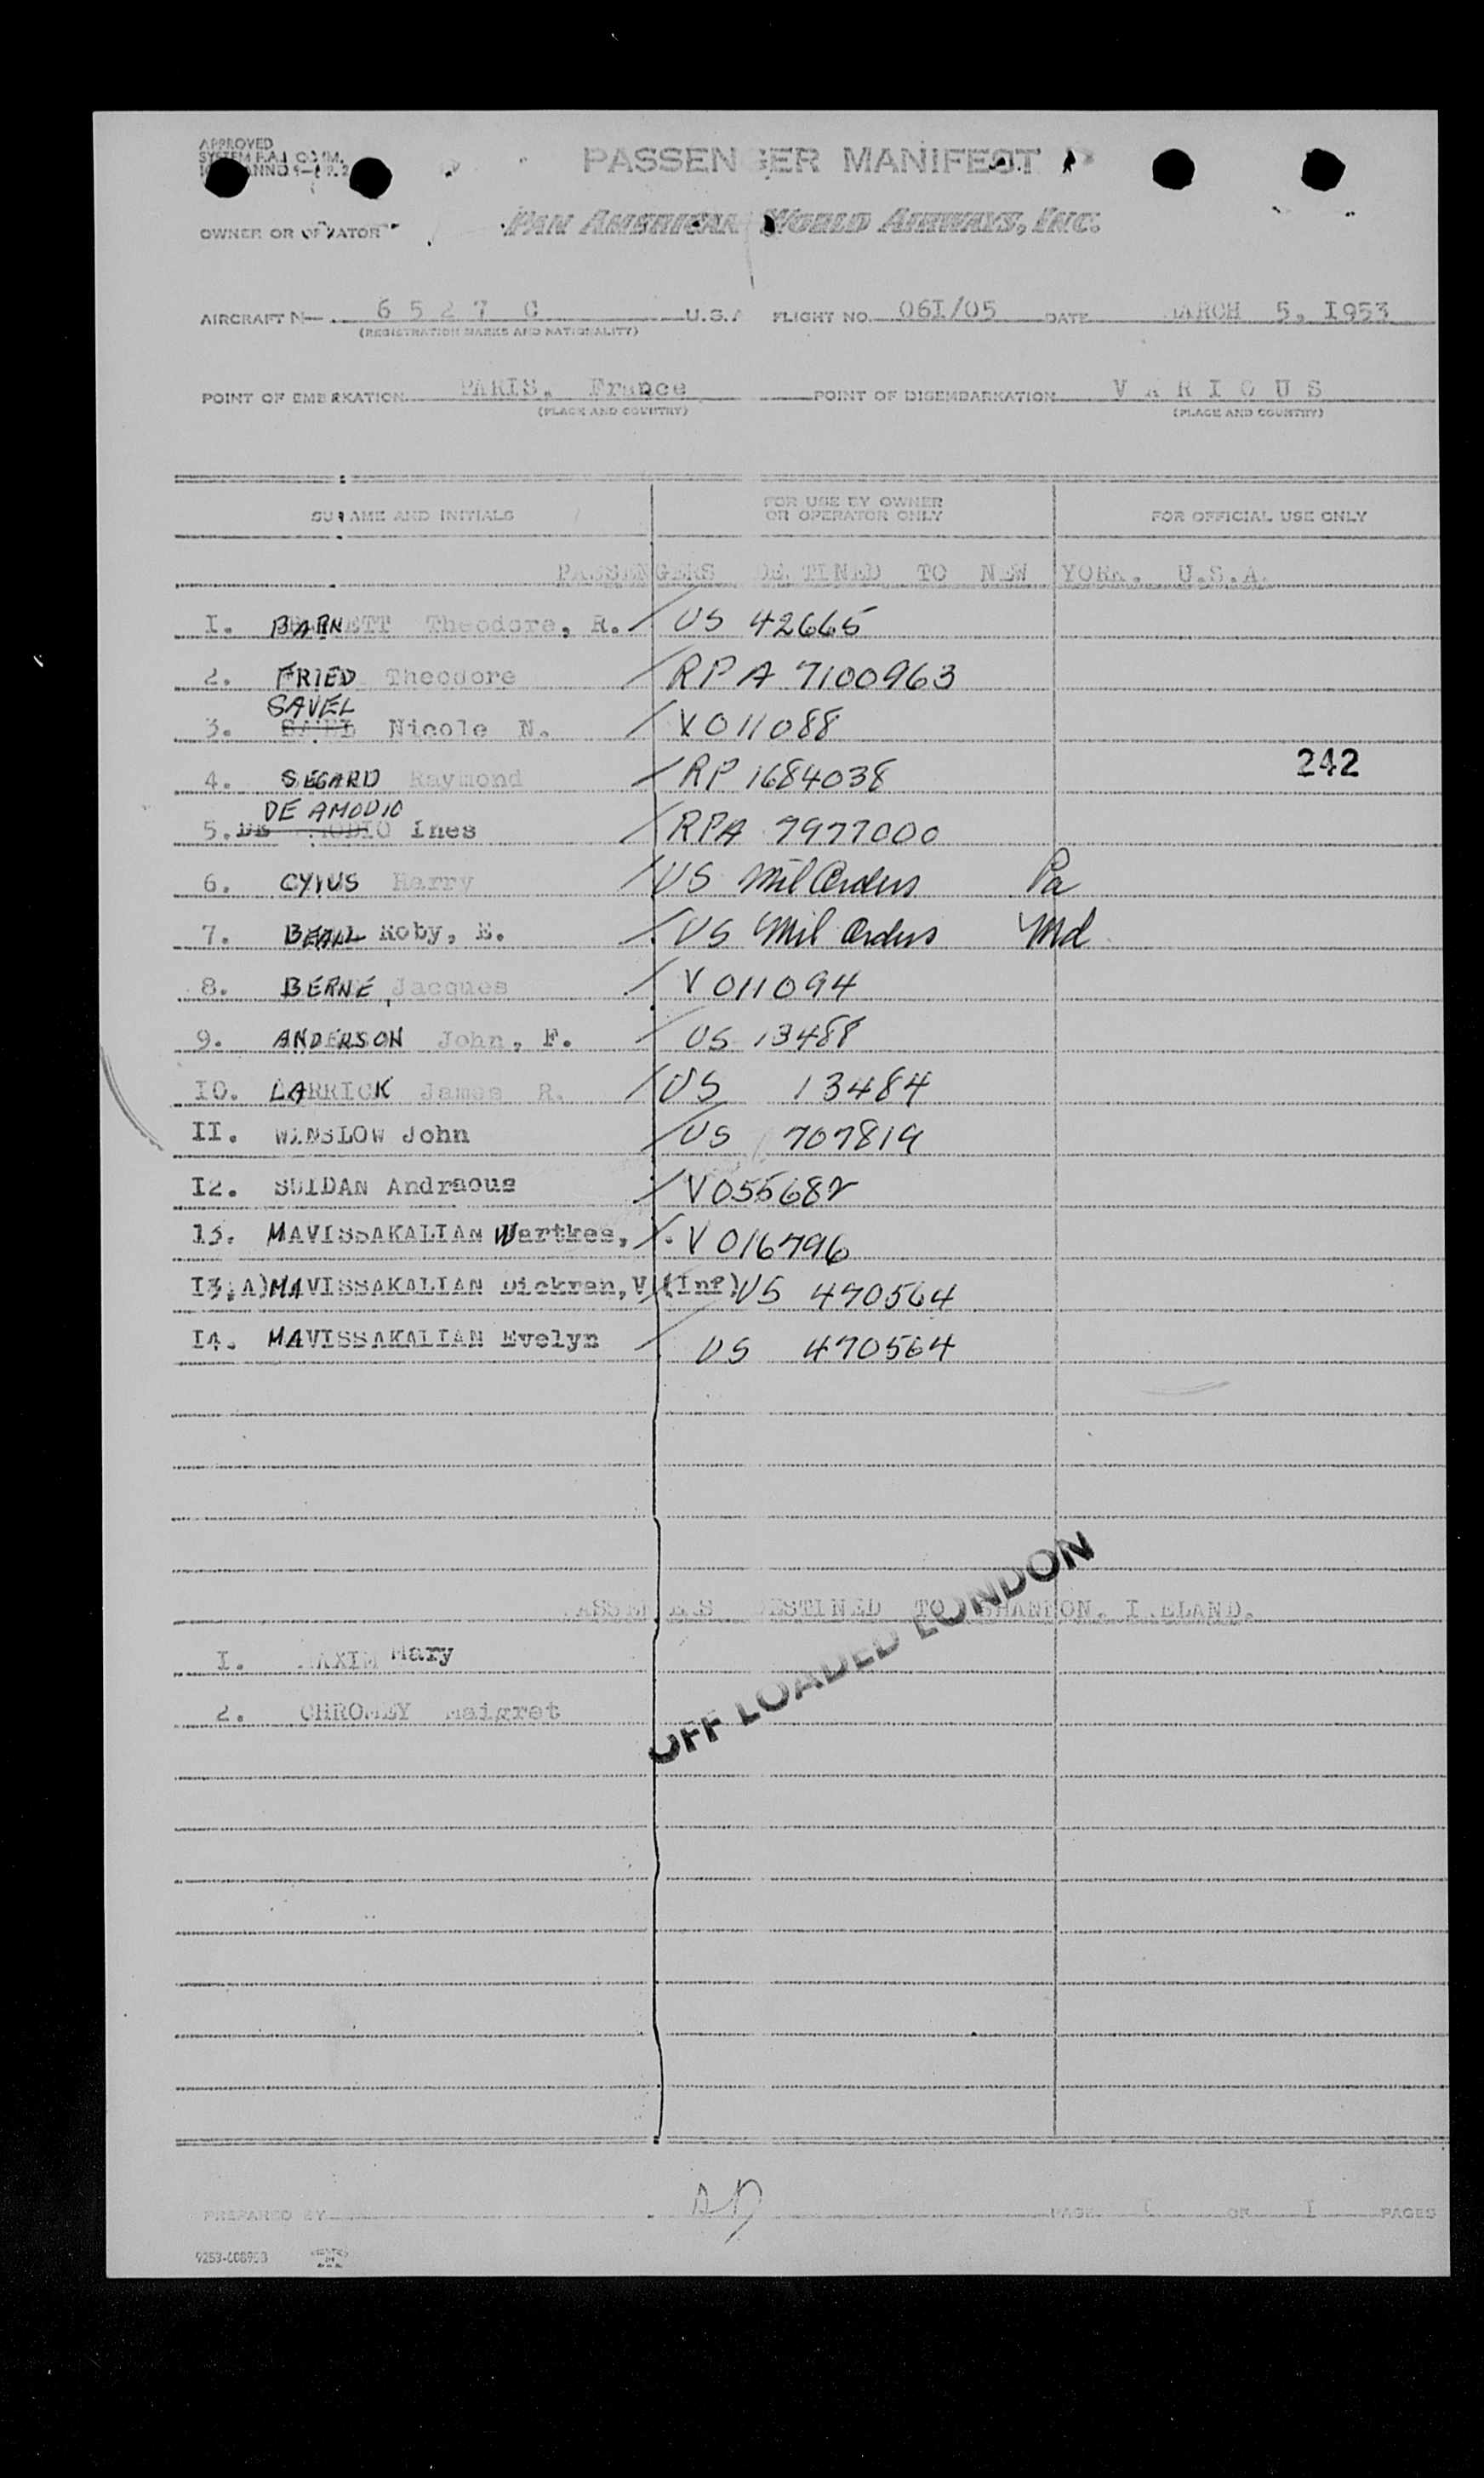 APPROVED
PASSENGER MANIFEST
OWNER OR OPERATOR PAN AMERICAN WORLD AIRWAYS, INC.
AIRCRAFT N— 6 5 2 7 C U.S.A FLIGHT NO. 06I/05 DATE MARCH 5, I953
(REGISTRATION MARKS AND NATIONALITY)
POINT OF EMBARKATION PARIS, France POINT OF DISEMBARKATION V A R I O U S
(PLACE AND COUNTRY) (PLACE AND COUNTRY)
SURNAME AND INITIALS FOR USE BY OWNER OR OPERATOR ONLY FOR OFFICIAL USE ONLY
PASSENGERS DESTINED TO NEW YORK. U.S.A.
I. BARNETT Theodore, R. / US 42665
2. FRIED Theodore / RPA 7100963
SAVEL
3. Nicole N. / V011088
242
4. SEGARD Raymond / RP 1684038
DE AMODIO
5. DE AMODIO Ines / RPA 7977000
6. Harry / US Mil Orders Pa
7. BEALL Roby, E. / US Mil Orders Md
8. BERNE, Jacques / V 011094
9. ANDERSON John, F. / US 13488
IO. LARRICK James R. / US 13484
II. WINSLOW John / US 707819
I2. SUIDAN Andraous / V055682
I3. MAVISSAKALIAN Wartkes, / V 016796
I3,A) MAVISSAKALIAN Dickran, V (Inf) US 470564
I4. MAVISSAKALIAN Evelyn / US 470564
PASSENGERS DESTINED TO SHANNON. IRELAND.
OFF LOADED LONDON
I. MAXIM Mary
2. Maigret
PREPARED BY PAGE I OF I PAGES